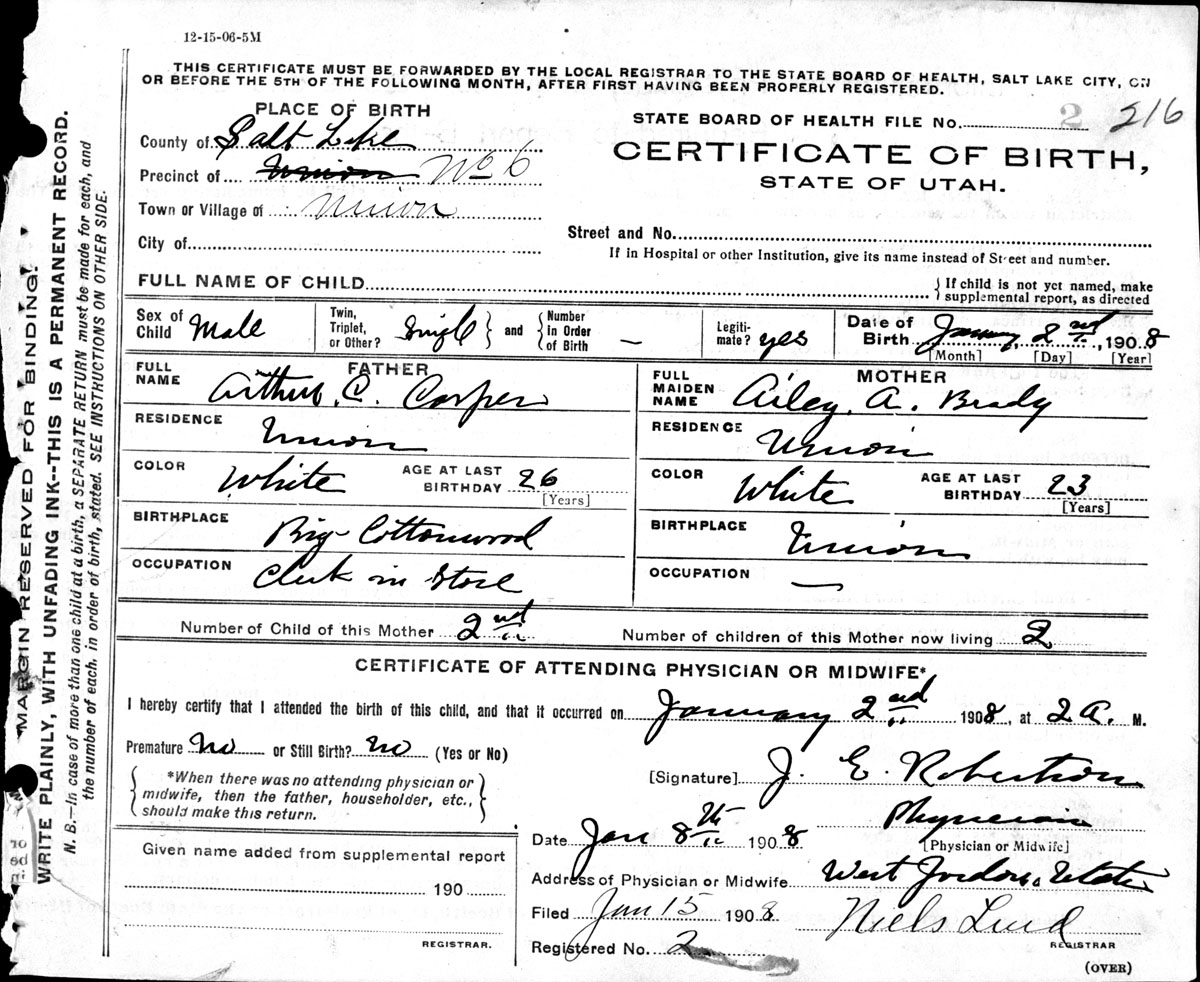 12-15-06-5M
THIS CERTIFICATE MUST BE FORWARDED BY THE LOCAL REGISTRAR TO THE STATE BOARD OF HEALTH, SALT LAKE CITY, ON
OR BEFORE THE 5TH OF THE FOLLOWING MONTH, AFTER FIRST HAVING BEEN PROPERLY REGISTERED.
PLACE OF BIRTH
County of Salt Lake
Precinct of Union No 6
Town or Village of Union
City of
STATE BOARD OF HEALTH FILE No. 2 216
CERTIFICATE OF BIRTH,
STATE OF UTAH.
Street and No.
If in Hospital or other Institution, give its name instead of Street and number.
FULL NAME OF CHILD
If child is not yet named, make
supplemental report, as directed
Sex of Child Male
Twin, Triplet, or Other? Single and Number in Order of Birth —
Legiti-mate? yes
Date of Birth January 2nd, 1908
[Month] [Day] [Year]
FATHER
FULL NAME Arthur C. Casper
RESIDENCE Union
COLOR White AGE AT LAST BIRTHDAY 26
[Years]
BIRTHPLACE Big Cottonwood
OCCUPATION Clerk in Store
MOTHER
FULL MAIDEN NAME Ailey A. Brady
RESIDENCE Union
COLOR White AGE AT LAST BIRTHDAY 23
[Years]
BIRTHPLACE Union
OCCUPATION —
Number of Child of this Mother 2nd
Number of children of this Mother now living 2
CERTIFICATE OF ATTENDING PHYSICIAN OR MIDWIFE*
I hereby certify that I attended the birth of this child, and that it occurred on January 2nd 1908, at 2 A. M.
Premature No or Still Birth? no (Yes or No)
*When there was no attending physician or
midwife, then the father, householder, etc.,
should make this return.
[Signature] J. E. Robertson
Physician
[Physician or Midwife]
Date Jan 8th 1908
Address of Physician or Midwife West Jordan Utah
Filed Jan 15 1908 Niels Lind
REGISTRAR
Registered No. 2
(OVER)
Given name added from supplemental report
190
REGISTRAR.
MARGIN RESERVED FOR BINDING.
WRITE PLAINLY, WITH UNFADING INK--THIS IS A PERMANENT RECORD.
N. B.—In case of more than one child at a birth, a SEPARATE RETURN must be made for each, and
the number of each, in order of birth, stated. SEE INSTRUCTIONS ON OTHER SIDE.